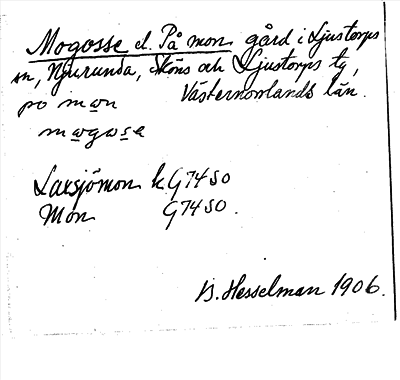 Mogosse el. På mon gård i Ljustorps
sn, Njurunda, Sköns och Ljustorps tg,
po mɷn Västernorrlands län.
mɷgɷsɐ
Laxsjömon k G 74 SO
Mon G 74 SO.
B. Hesselman 1906.